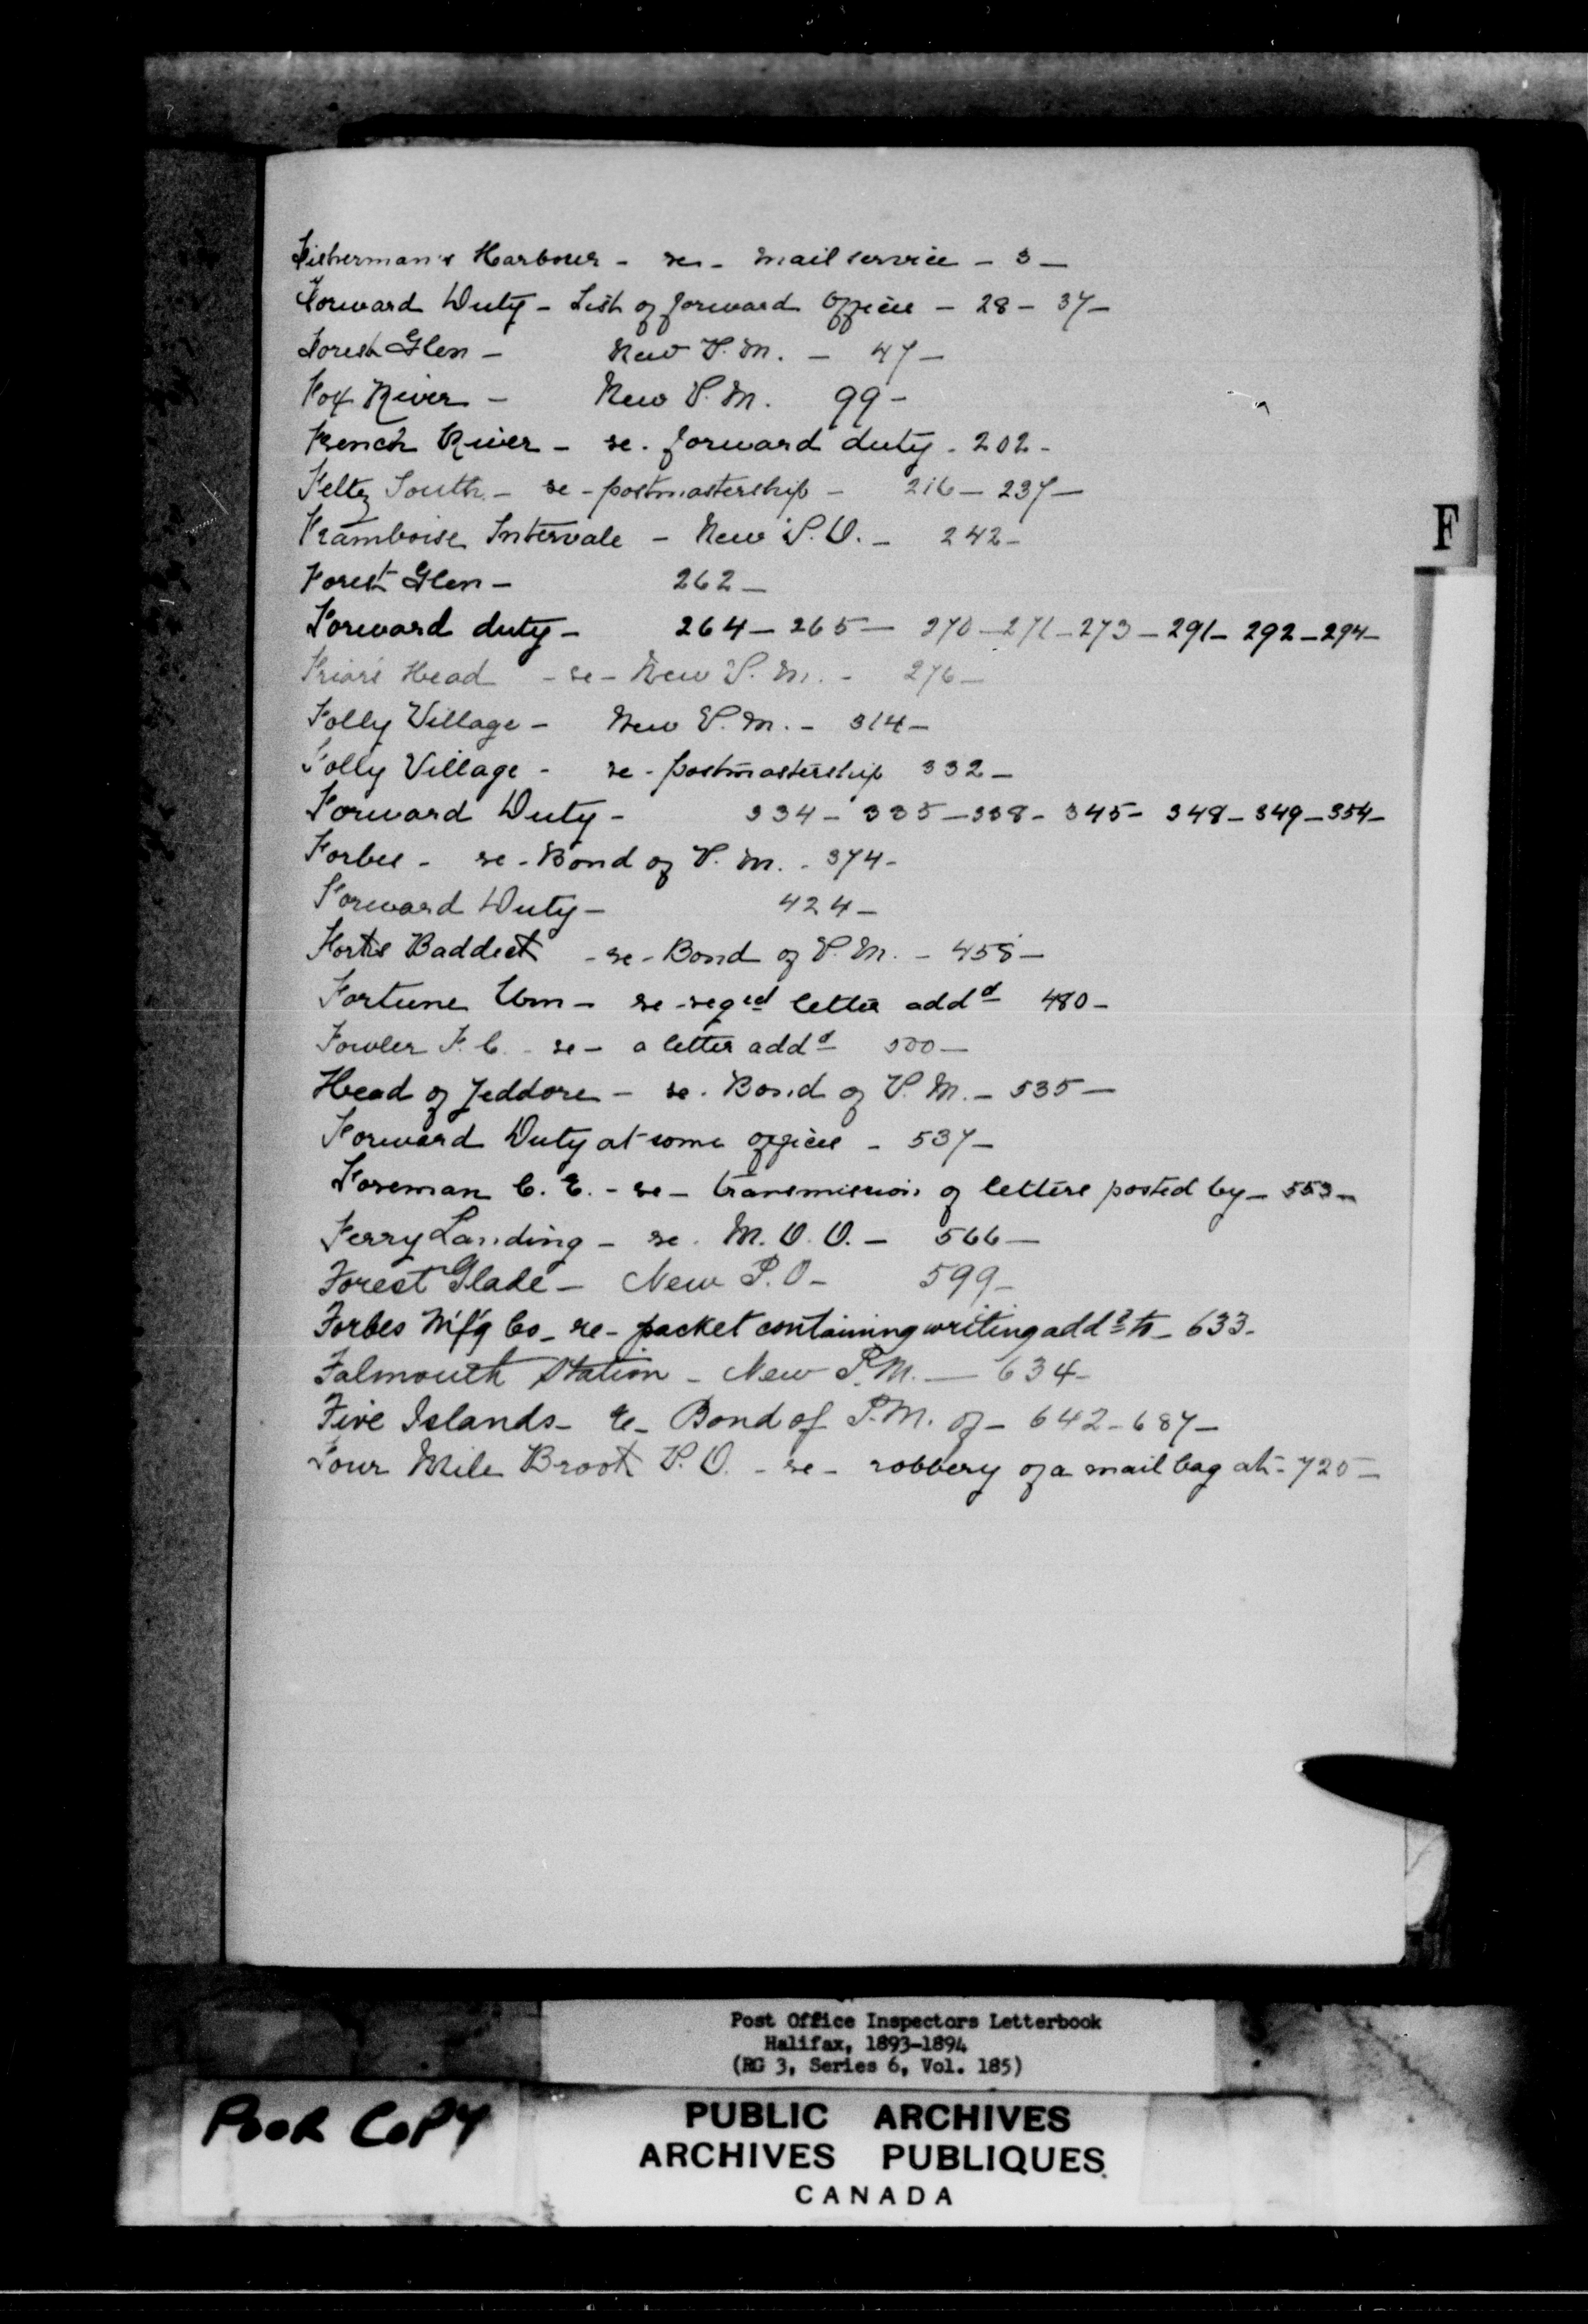 Fisherman's Harbour - re - mail service - 3 -
Forward Duty - List of forward offices - 28 - 37 -
Forest Glen - New P.M. - 47 -
Fox River - New P.M. 99 -
French River - re. forward duty - 202 -
Feltz South - re - postmastership - 216 - 237 -
Framboise Intervale - New P.O. - 242 -
Forest Glen - 262 -
Forward duty - 264 - 265 - 270 - 271 - 273 - 291 - 292 - 294 -
Friars Head - re - New P.M. - 276 -
Folly Village - New P.M. - 314 -
Folly Village - re - postmastership 332 -
Forward Duty - 334 - 335 - 338 - 345 - 348 - 349 - 354 -
Forbes - re - Bond of P.M. - 374 -
Forward Duty - 424 -
Forks Baddeck - re - Bond of P.M. - 458 -
Fortune Wm - re - reged letter addd 480 -
Fowler F. C. - re - a letter addd 500 -
Head of Jeddore - re. Bond of P.M. - 535 -
Forward Duty at some offices - 537 -
Foreman C. E. - re - transmission of letters posted by - 553 -
Ferry Landing - re. M.O.O. - 566 -
Forest Glade - New P.O - 599 -
Forbes M'f'g Co - re - packet containing writing addd to - 633 -
Falmouth Station - New P.M. - 634 -
Five Islands - re - Bond of P.M. of - 642 - 687 -
Four Mile Brook P.O. - re - robbery of a mail bag at - 725 -
F
Post Office Inspectors Letterbook
Halifax, 1893-1894
(RG 3, Series 6, Vol. 185)
POOR COPY
PUBLIC ARCHIVES
ARCHIVES PUBLIQUES
CANADA